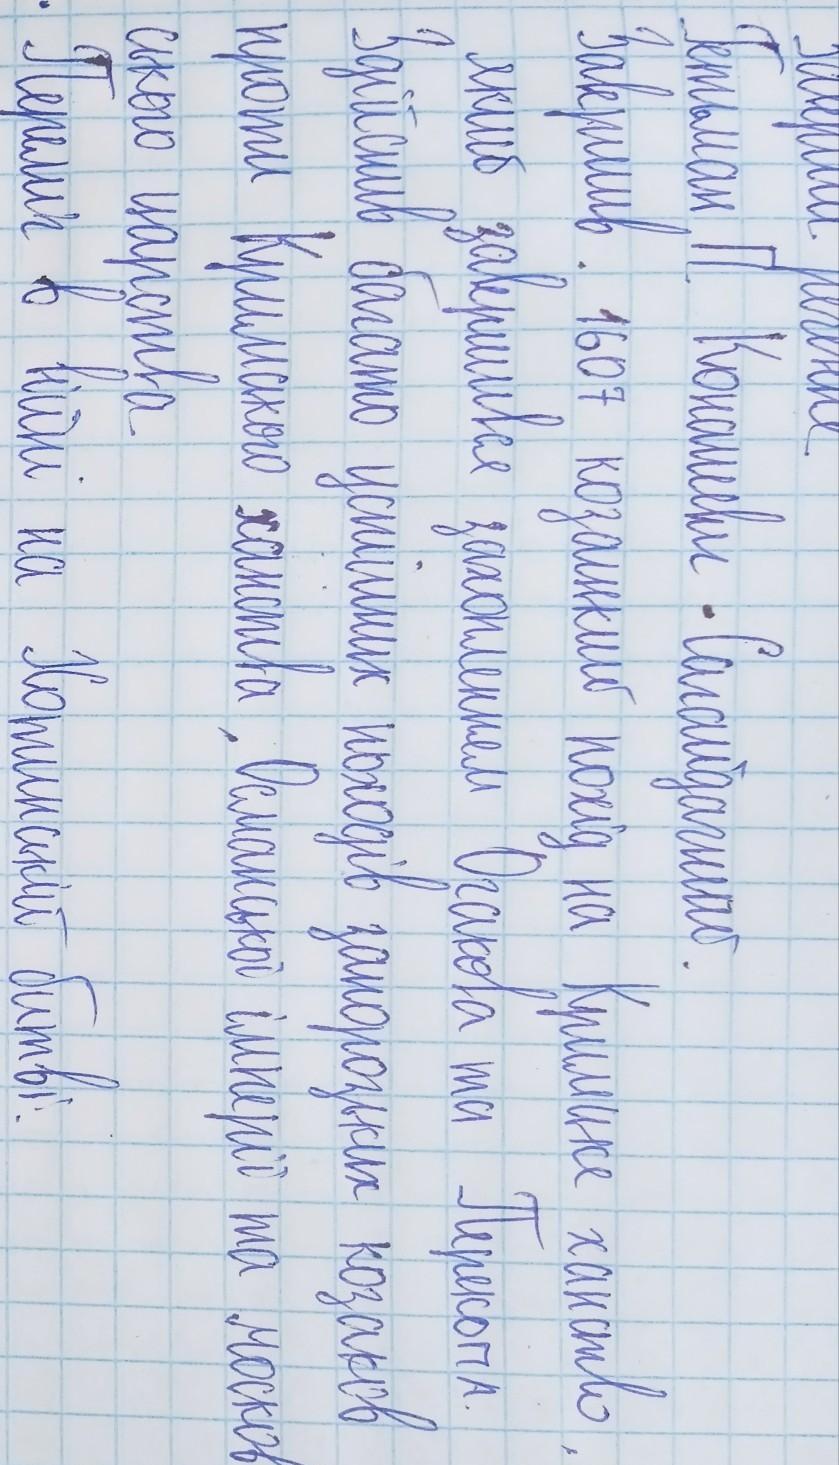 Гетьман П. Конашевич - Сагайдачний.
Завершив. 1607 козацький похід на Кримське ханство,
який завершився захопленнем Очакова та Перекопа.
Здійснив багато успішних походів запорозьких козаків
проти Кримського ханства, Османської імперії та Москов
ського царства
Переміг в війні на Хотинській битві.